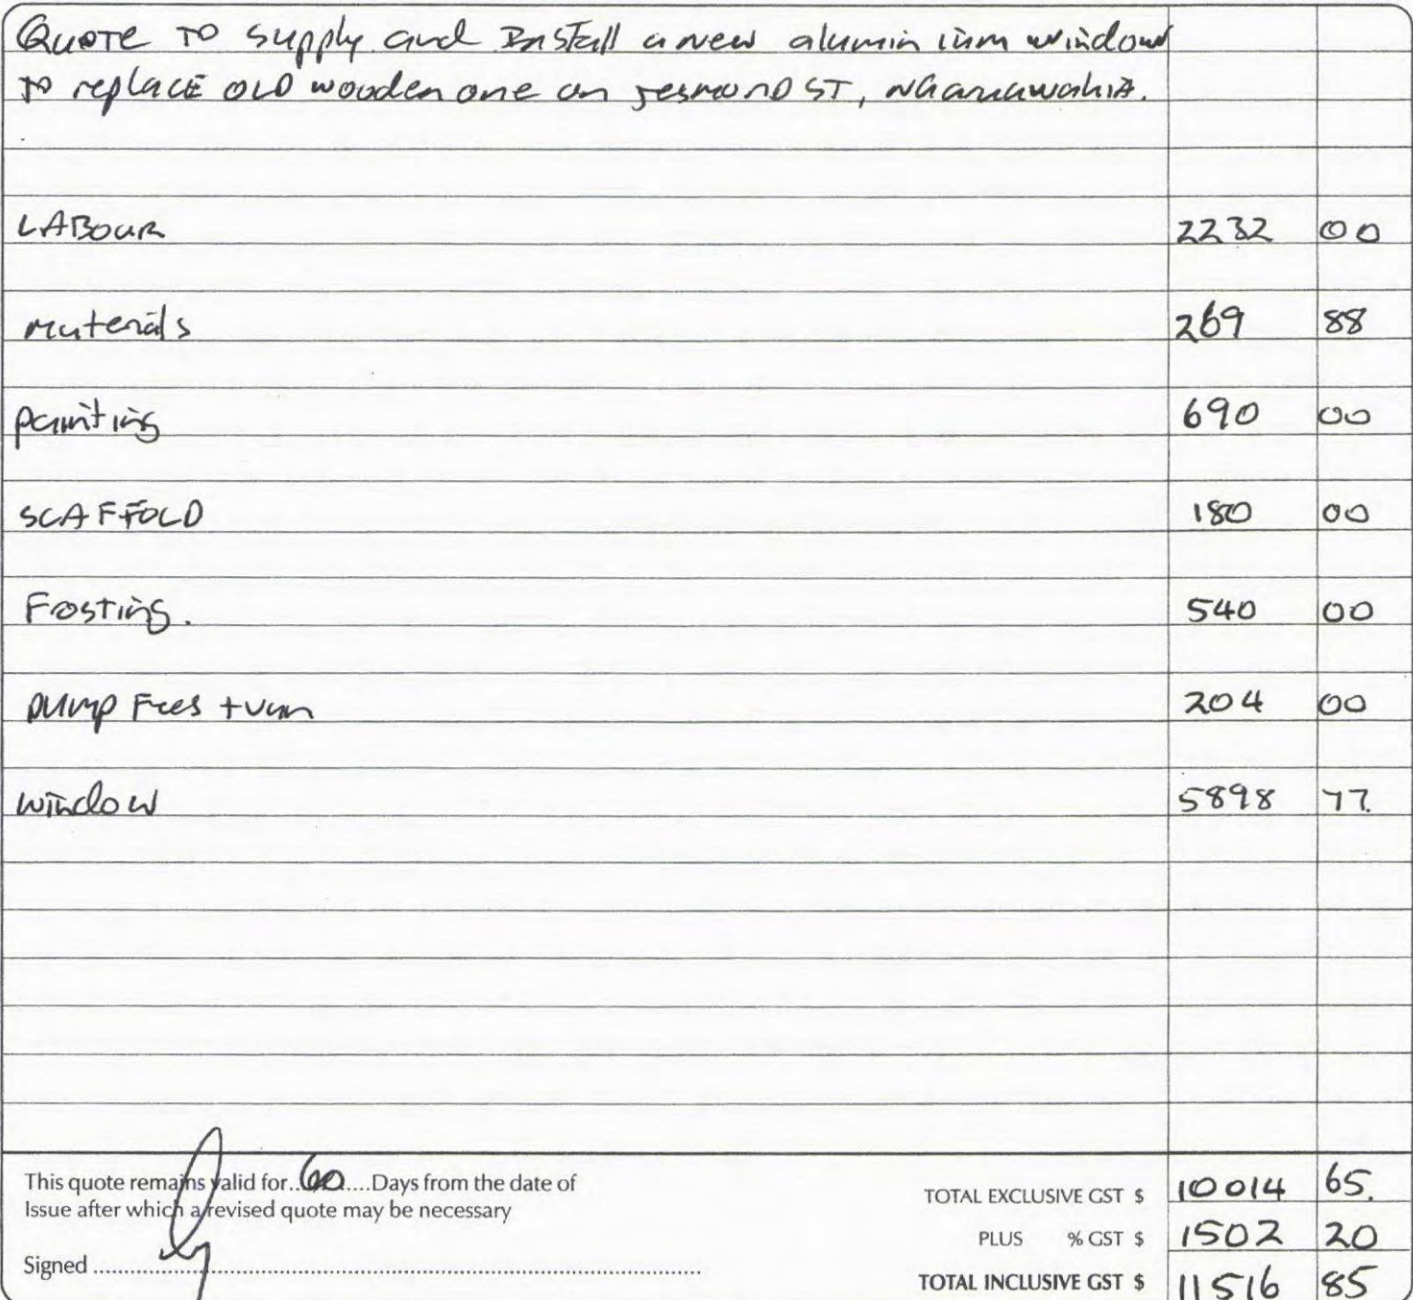 Quote TO supply and Install a new aluminium window
TO replace OLD wooden one on Jesmond ST, NGaruawahia.
LABour 2232 00
materials 269 88
painting 690 00
SCAFFOLD 180 00
Frosting. 540 00
Dump Fees + van 204 00
window 5898 77.
This quote remains valid for..60....Days from the date of
Issue after which a revised quote may be necessary
TOTAL EXCLUSIVE GST $ 10014 65.
PLUS % GST $ 1502 20
Signed
TOTAL INCLUSIVE GST $ 11516 85